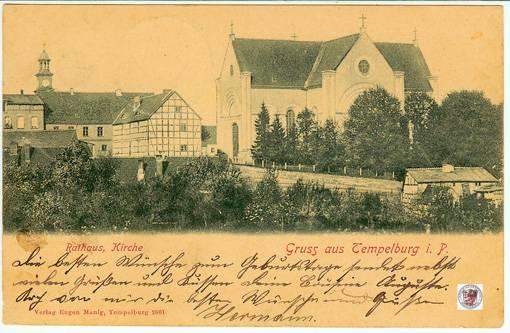 Rathaus, Kirche
Gruss aus Tempelburg i. P.
Die besten Wünsche zum Geburtstage sendet nebst
vielen Grüßen und Küssen deine Auguste.
Doch von mir die besten Wünsche und Grüße
Hermann.
Verlag Eugen Manig, Tempelburg 2801